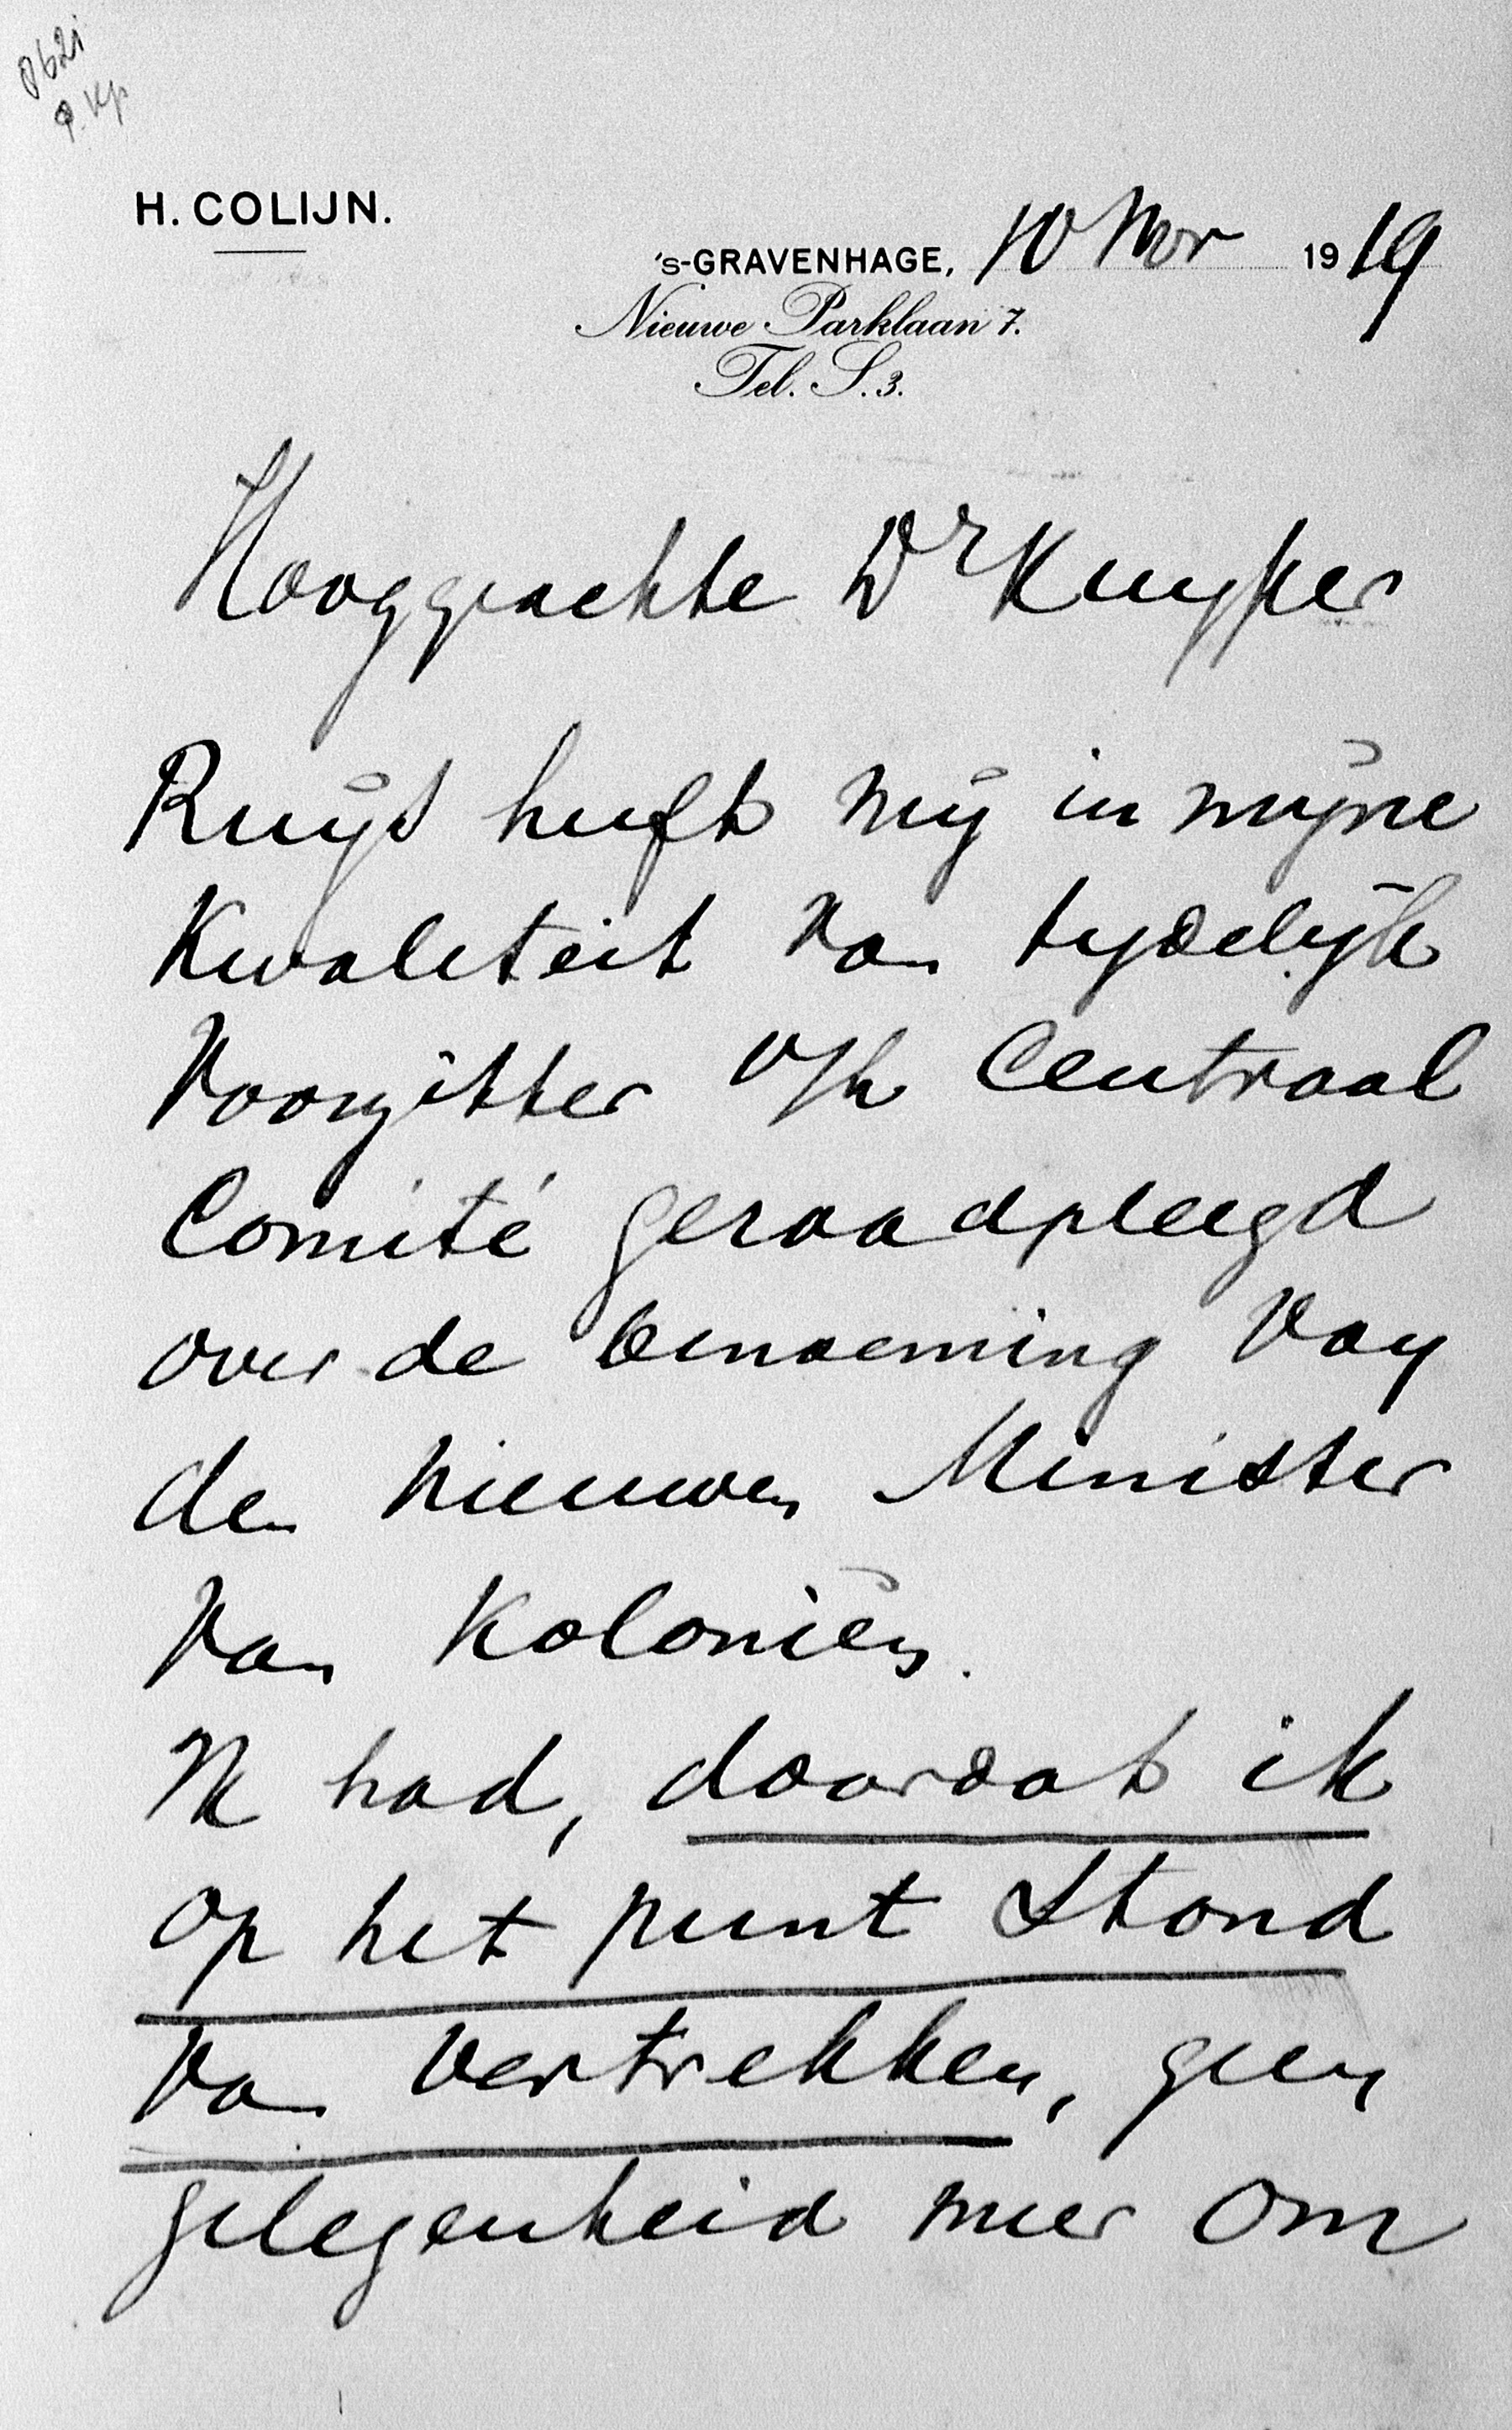 8621
H. COLIJN.
's-GRAVENHAGE, 10 Nov 1919
Nieuwe Parklaan 7.
Tel. S. 3.
Hooggeachte Dr Kuyper
Ruijs heeft mij in mijne
Kwaliteit van tijdelijk
Voorzitter v/h Centraal
Comité geraadpleegd
over de benoeming van
den nieuwen Minister
van Koloniën.
Ik had, doordat ik
op het punt stond
van vertrekken, geen
gelegenheid meer om